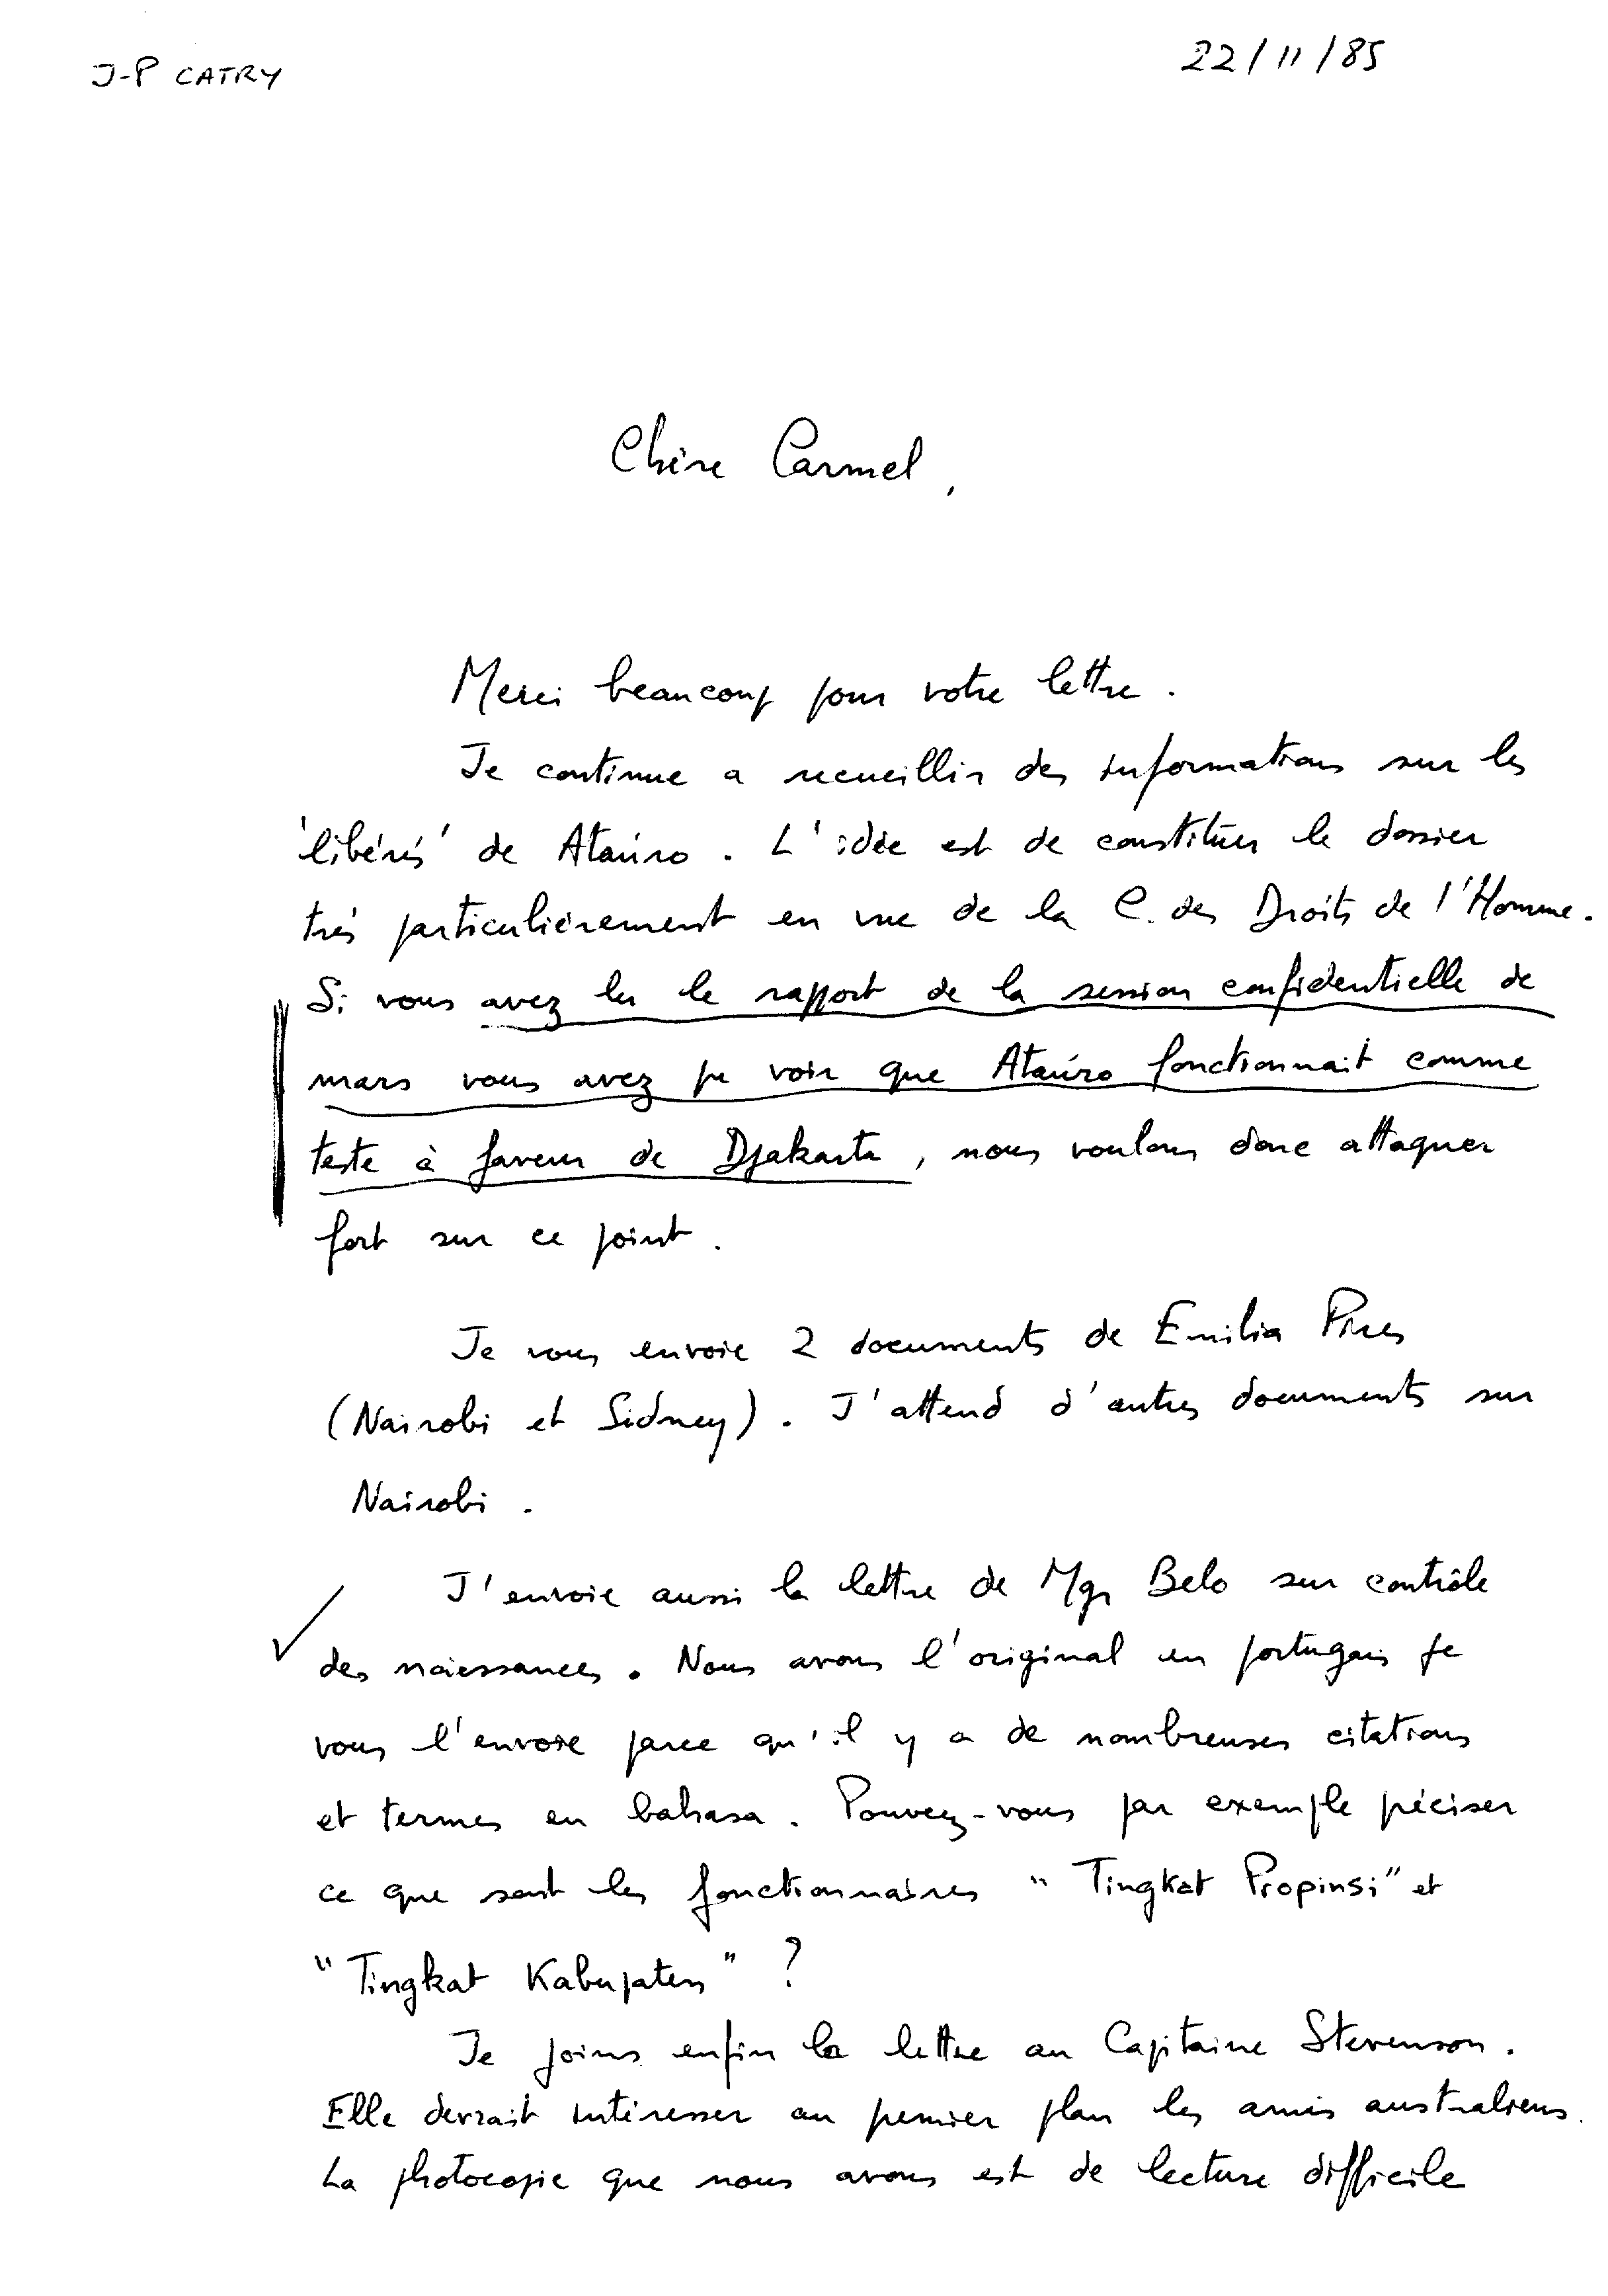 J-P CATRY
22/11/85
Chère Carmel,
Merci beaucoup pour votre lettre.
Je continue a recueillir des informations sur les
'libérés' de Ataúro. L'idée est de constituer le dossier
très particulièrement en vue de la C. des Droits de l'Homme.
Si vous avez lu le rapport de la session confidentielle de
mars vous avez pu voir que Ataúro fonctionnait comme
teste à faveur de Djakarta, nous voulons donc attaquer
fort sur ce point.
Je vous envoie 2 documents de Emilia Pires
(Nairobi et Sidney). J'attend d'autres documents sur
Nairobi.
J'envoie aussi la lettre de Mgr Belo sur contrôle
des naissances. Nous avons l'original en portugais je
vous l'envoie parce qu'il y a de nombreuses citations
et termes en bahasa. Pouvez-vous par exemple préciser
ce que sont les fonctionnaires "Tingkat Propinsi" et
"Tingkat Kabupaten" ?
Je joins enfin la lettre au Capitaine Stevenson.
Elle devrait intéresser au premier plan les amis australiens.
La photocopie que nous avons est de lecture difficile